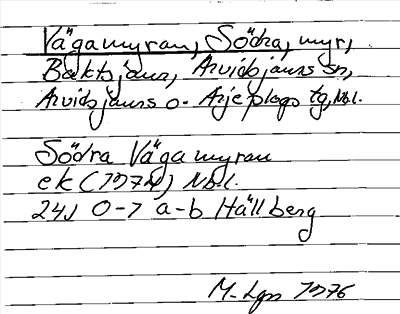 Vägamyran, Södra, myr,
Baktsjaur, Arvidsjaurs sn,
Arvidsjaurs o. Arjeplogs tg, Nbl.
Södra Vägamyran
ek (1974) Nbl.
24J 0-7 a-b Hällberg
M-Lgn 1976